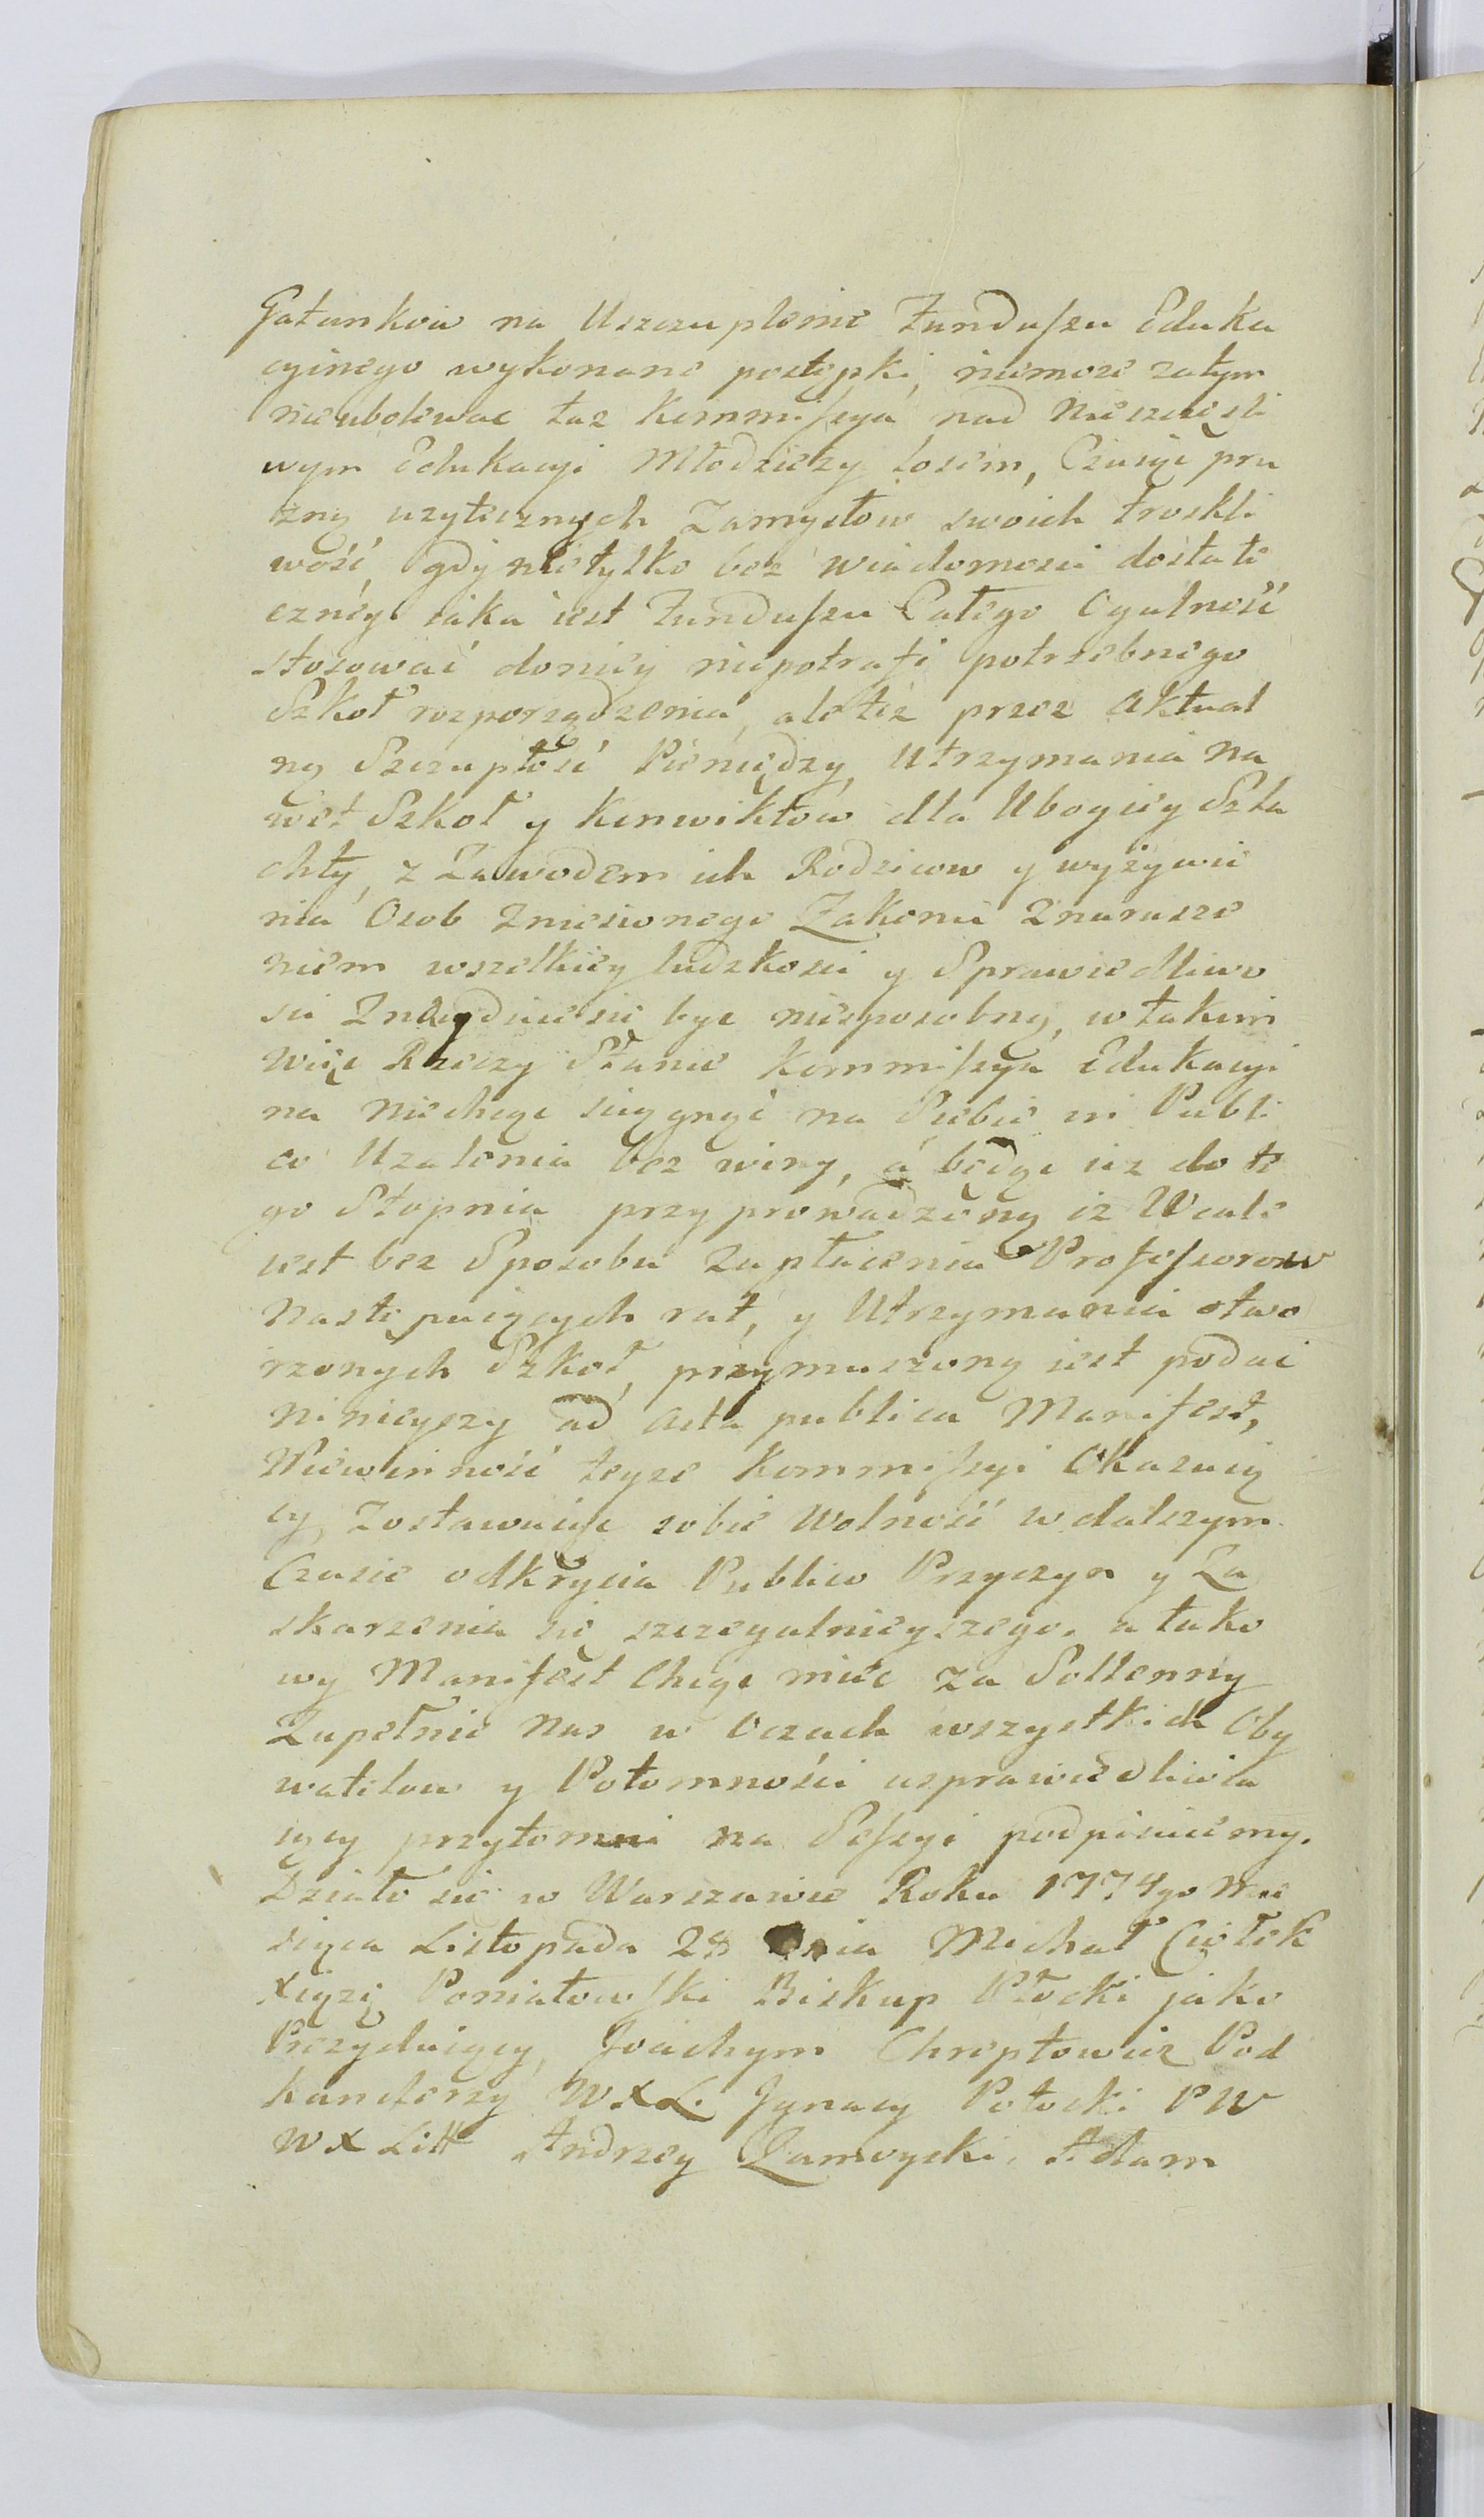 Gatunkow na Uszczuplenie Funduszu Eduka
cyinego wykonane postępki, niemoże zatym
nieubolewac taz Kommissya nad nieszczęśli
wym Edukacyi Młodzieży losem, Czuiąc pru
żną uzytecznych Zamysłow swoich troskli
wość, gdy nietylko bez wiadomosci dostate
czney iaka iest Funduszu Całego Ogulność
stosować doniey niepotrafi potrzebnego
Szkoł rozporządzenia, ale też przez Aktual
ną Szczupłość Pieniędzy, Utrzymania na
wet Szkoł y Konwiktow dla Ubogiey Szla
chty, z Zawodem ich Rodzicow y wyżywie
nia Osob Zniesionego Zakonu Znarusze
niem wszelkiey ludzkosci y Sprawiedliwo
sci Znayduie się byc niesposobną, w takim
więc Rzeczy Stanie Kommissya Edukacyi
na niechcąc sciągnąć na Siebie in Publi
co Uzalenia bez winy, á będąc iuz do te
go Stopnia przyprowadzoną iz Wcale
iest bez Sposobu Zapłacenia Professorow
Następuiących rat, y Utrzymania otwo
rzonych Szkoł, przymuszoną iest podac
ninieyszy ad Acta publica Manifest,
Niewinność teyze Kommissyi Okazuią
cy, Zostawuiąc sobie Wolność w dalszym
Czasie odkrycia Publico Przyczyn y Za
skarzenia się szczegulnieyszego. a tako
wy Manifest Chcąc miec za Sollenny
Zupełnie Nas w Oczach wszystkich Oby
watelow y Potomności usprawiedliwia
iący przytomni na Sessyi podpisuiemy.
Działo się w Warszawie Roku 1774go Mie
siąca Listopada 28 Dnia Michał Ciołek
Xiążę Poniatowski Biskup Płocki jako
Prezyduiący, Joachym Chreptowicz Pod
kanclerzy W.X.L. Jgnacy Potocki P W
W X Litt Andrzey Zamoyski, Adam